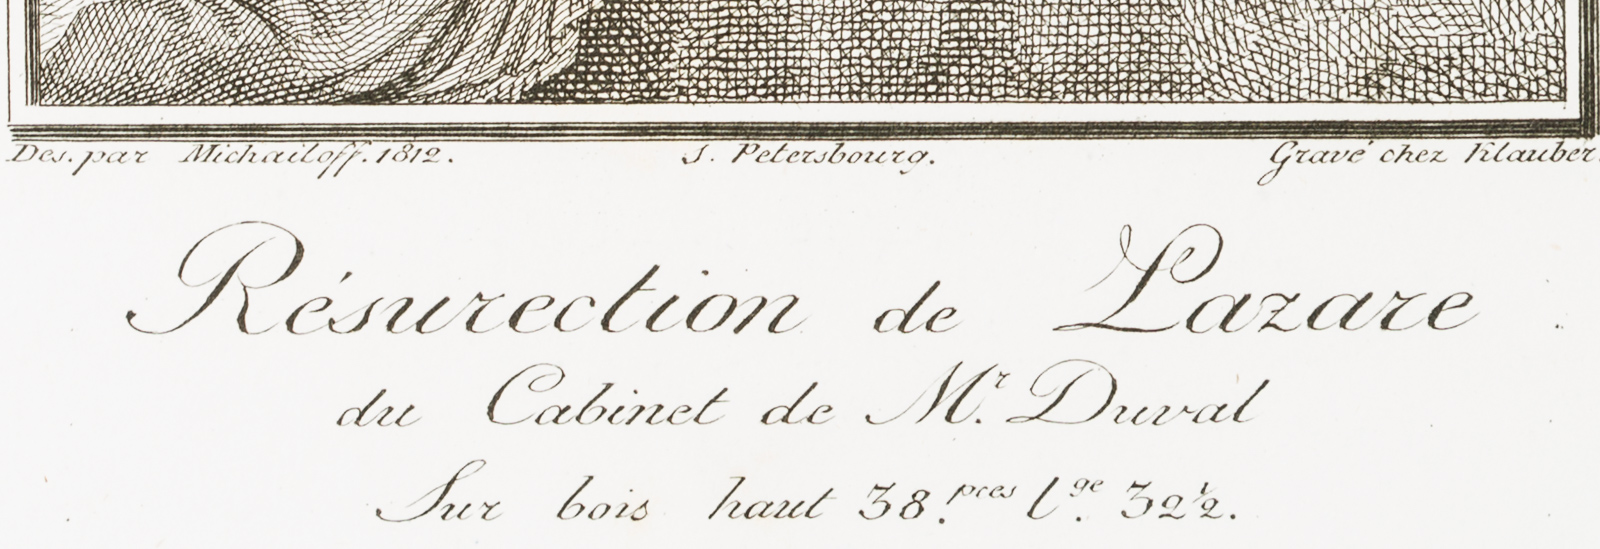 Des. par Michailoff. 1812. S. Petersbourg. Gravé chez Klauber.
Résurection de Lazare
du Cabinet de Mr. Duval
Sur bois haut 38. pces l.ge 32½.